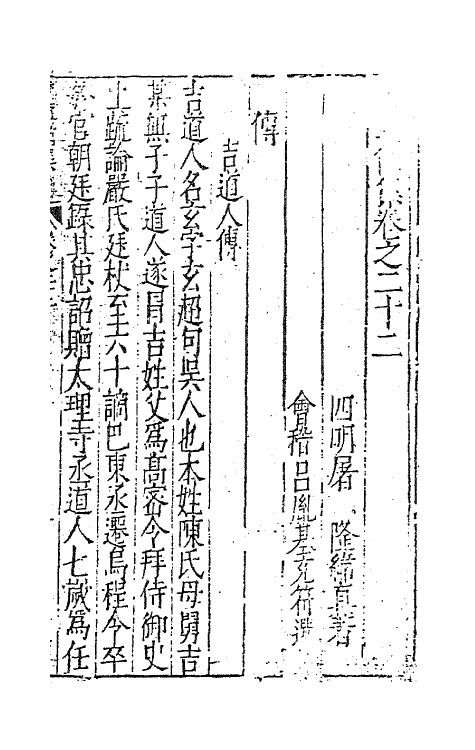 卷之二十二
四明屠隆緯真著
會稽呂胤基充符選
傳
吉道人傳
吉道人名玄字玄超句吳人也本姓陳氏母舅吉
某無子子道人遂冐吉姓父爲髙密令拜侍御史
上疏論嚴氏廷杖至六十謫巴東丞遷烏程令卒
官朝廷錄其忠詔贈太理寺丞道人七歲爲任